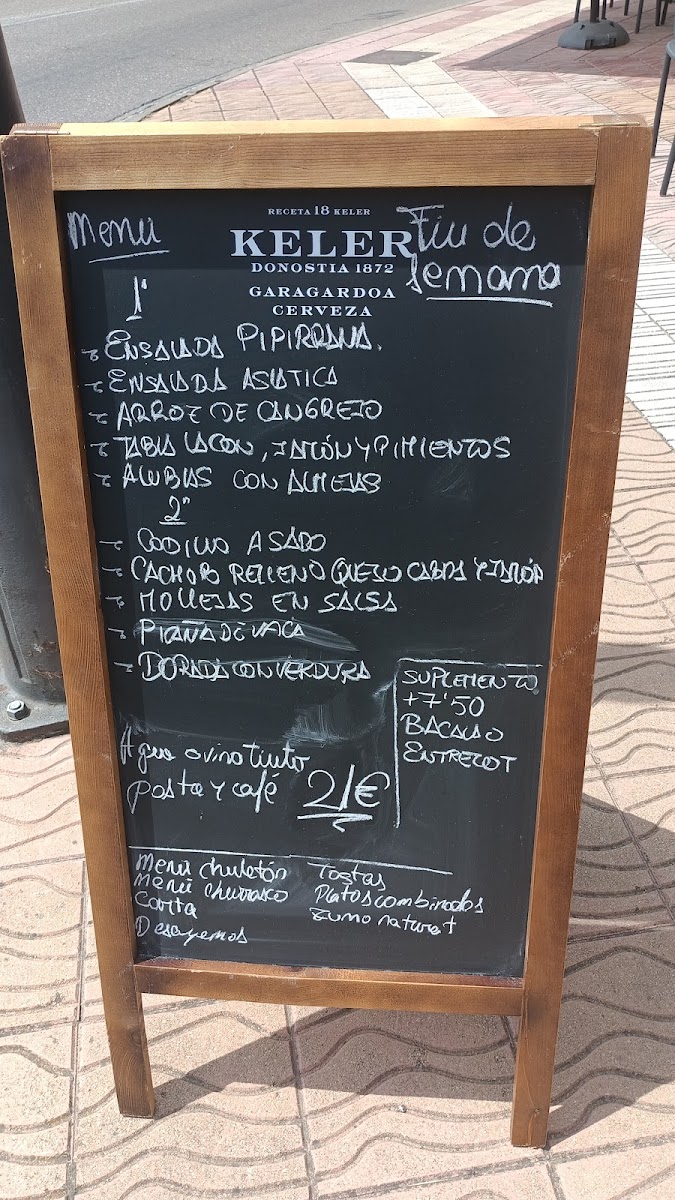 Menú
RECETA 18 KELER
KELER
DONOSTIA 1872
GARAGARDOA
CERVEZA
Fin de
semana
1º
- ENSALADA PIPIRRANA.
- ENSALADA ASIATICA
- ARROZ DE CANGREJO
- TABLA LACON, JAMÓN Y PIMIENTOS
- ALUBIAS CON ALMEJAS
2º
- CODILLO ASADO
- CACHOPO RELLENO QUESO CABRA Y JAMÓN
- MOLLEJAS EN SALSA
- PICAÑA DE VACA
- DORADA CON VERDURA
SUPLEMENTO
+7'50
BACALAO
ENTRECOT
Agua o vino tinto
posta y café 21€
Menú chuletón
Menú churrasco
Carta
Desayunos
Tostas
Platos combinados
Zumo natural